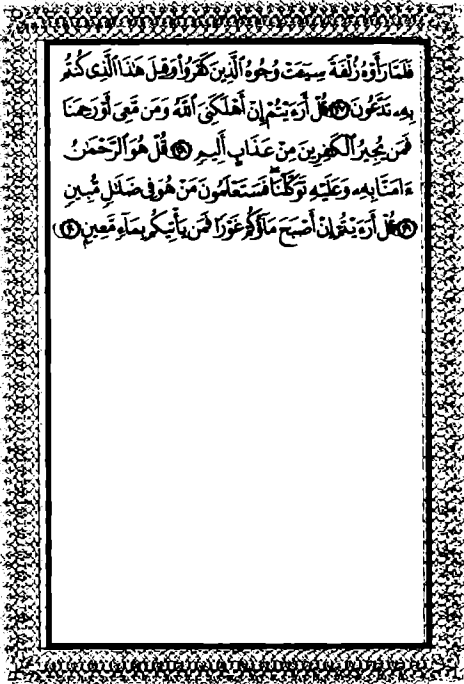 فَلَمَّا رَأَوْهُ زُلْفَةً سِيٓـَٔتْ وُجُوهُ ٱلَّذِينَ كَفَرُوا۟ وَقِيلَ هَٰذَا ٱلَّذِى كُنتُم
بِهِۦ تَدَّعُونَ ۝ قُلْ أَرَءَيْتُمْ إِنْ أَهْلَكَنِىَ ٱللَّهُ وَمَن مَّعِىَ أَوْ رَحِمَنَا
فَمَن يُجِيرُ ٱلْكَٰفِرِينَ مِنْ عَذَابٍ أَلِيمٍ ۝ قُلْ هُوَ ٱلرَّحْمَٰنُ
ءَامَنَّا بِهِۦ وَعَلَيْهِ تَوَكَّلْنَا ۖ فَسَتَعْلَمُونَ مَنْ هُوَ فِى ضَلَٰلٍ مُّبِينٍ
۝ قُلْ أَرَءَيْتُمْ إِنْ أَصْبَحَ مَآؤُكُمْ غَوْرًا فَمَن يَأْتِيكُم بِمَآءٍ مَّعِينٍۭ ۝